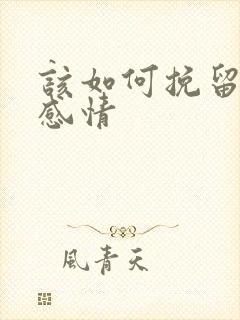 該如何挽留
感情
風青天